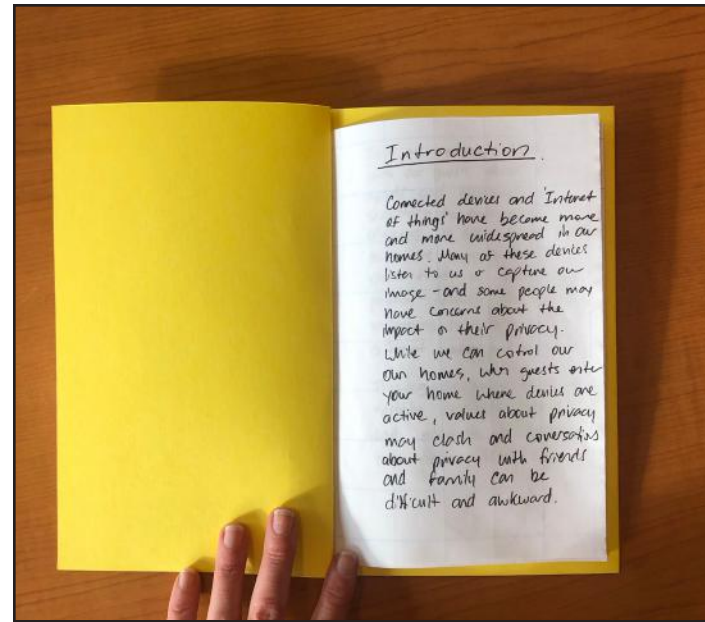 Introduction.
Connected devices and 'Internet
of things' have become more
and more widespread in our
homes. Many of these devices
listen to us or capture our
image - and some people may
have concerns about the
impact on their privacy.
While we can cotrol our
own homes, when guests enter
your home where devices are
active, values about privacy
may clash and conversations
about privacy with friends
and family can be
difficult and awkward.